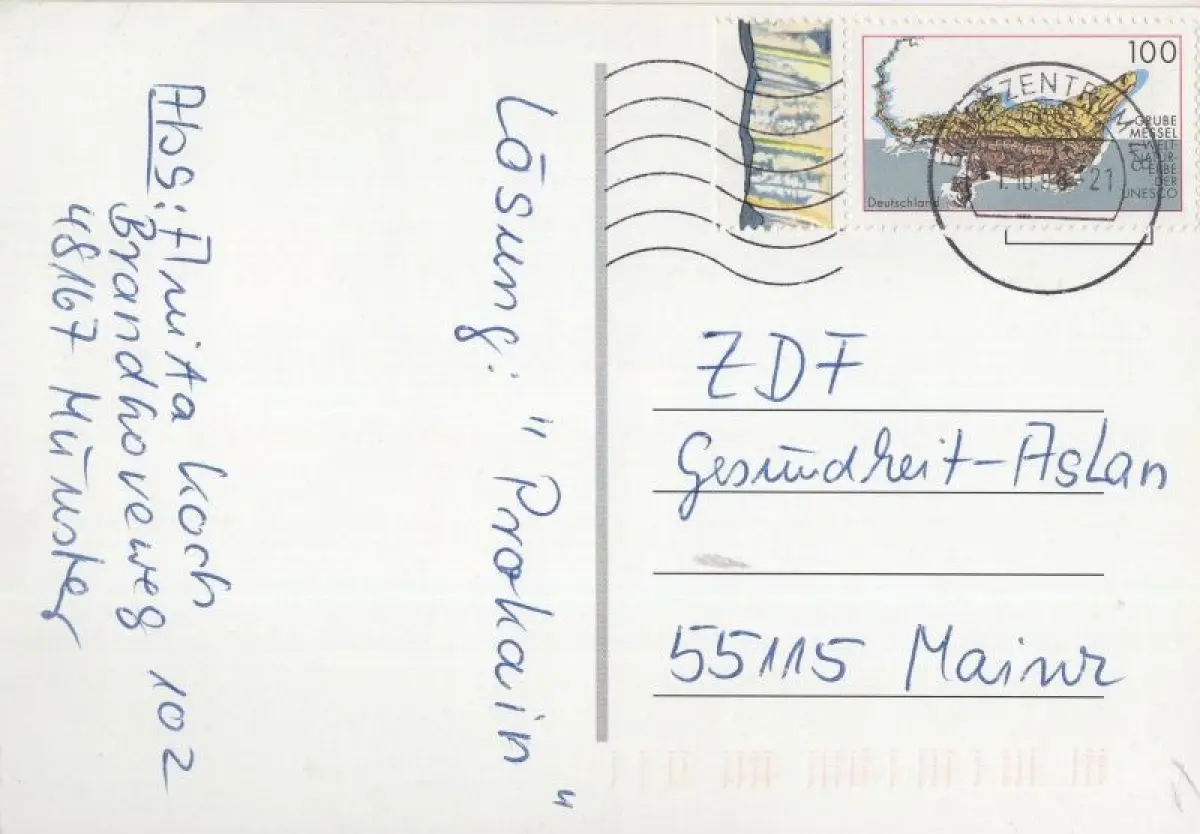 Abs: Anita Koch
Brandhoveweg 102
48167 Münster
Lösung: " Prokain "
100
GRUBE
MESSEL
WELT-
NATUR-
ERBE
DER
UNESCO
Deutschland
BRIEFZENTRUM
21
ZDF
Gesundheit-Aslan
55115 Mainz